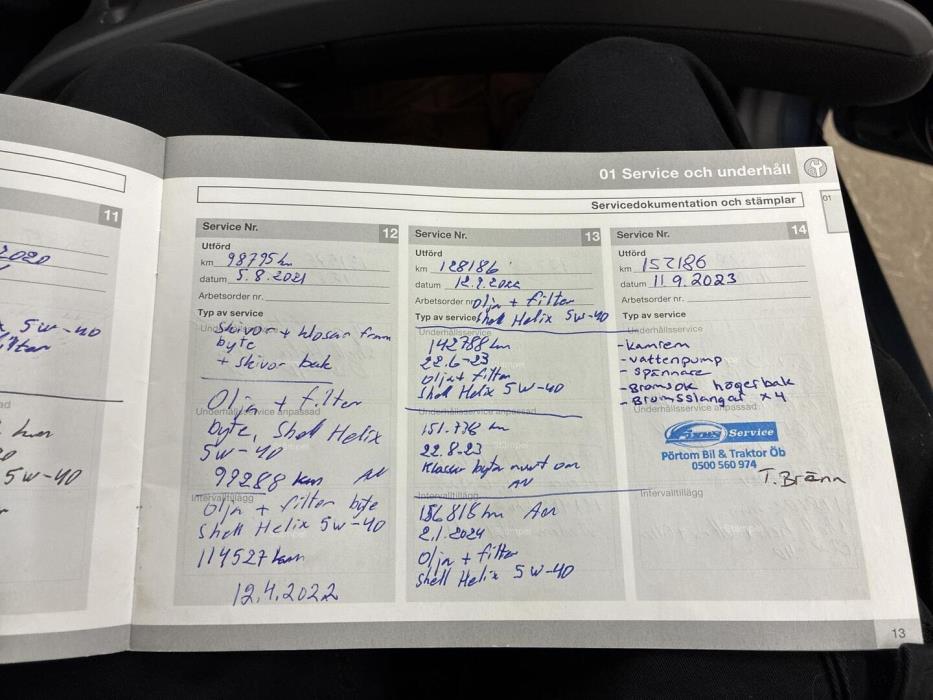 01 Service och underhåll
Servicedokumentation och stämplar
01
11
2020
5w-40
5w-40
Service Nr. 12
Utförd
km 98795 km
datum 5.8.2021
Arbetsorder nr.
Typ av service
Skivor + klossar fram
byte
+ skivor bak
Olja + filter
Underhållsservice anpassad
byte, Shell Helix
5w-40
99288 km AN
Intervalltillägg
Olja + filter byte
Shell Helix 5w-40
114527 km
12.4.2022
Service Nr. 13
Utförd
km 128186
datum
Arbetsorder nr. olja + filter
Typ av service Shell Helix 5W-40
Underhållsservice
142788 km
22.6-23
olja + filter
Shell Helix 5W-40
Underhållsservice anpassad
151.778 km
22.8-23
Klossar byte runt om
AN
Intervalltillägg
156818 km
2.1.2024
Olja + filter
Shell Helix 5W-40
Service Nr. 14
Utförd
km 152186
datum 11 9.2023
Arbetsorder nr.
Typ av service
Underhållsservice
-kamrem
-vattenpump
- spännare
-Bromsok högerbak
-Bromsslangar x4
Underhållsservice anpassad
Service
Pörtom Bil & Traktor Öb
0500 560 974
T. Bränn
Intervalltillägg
13